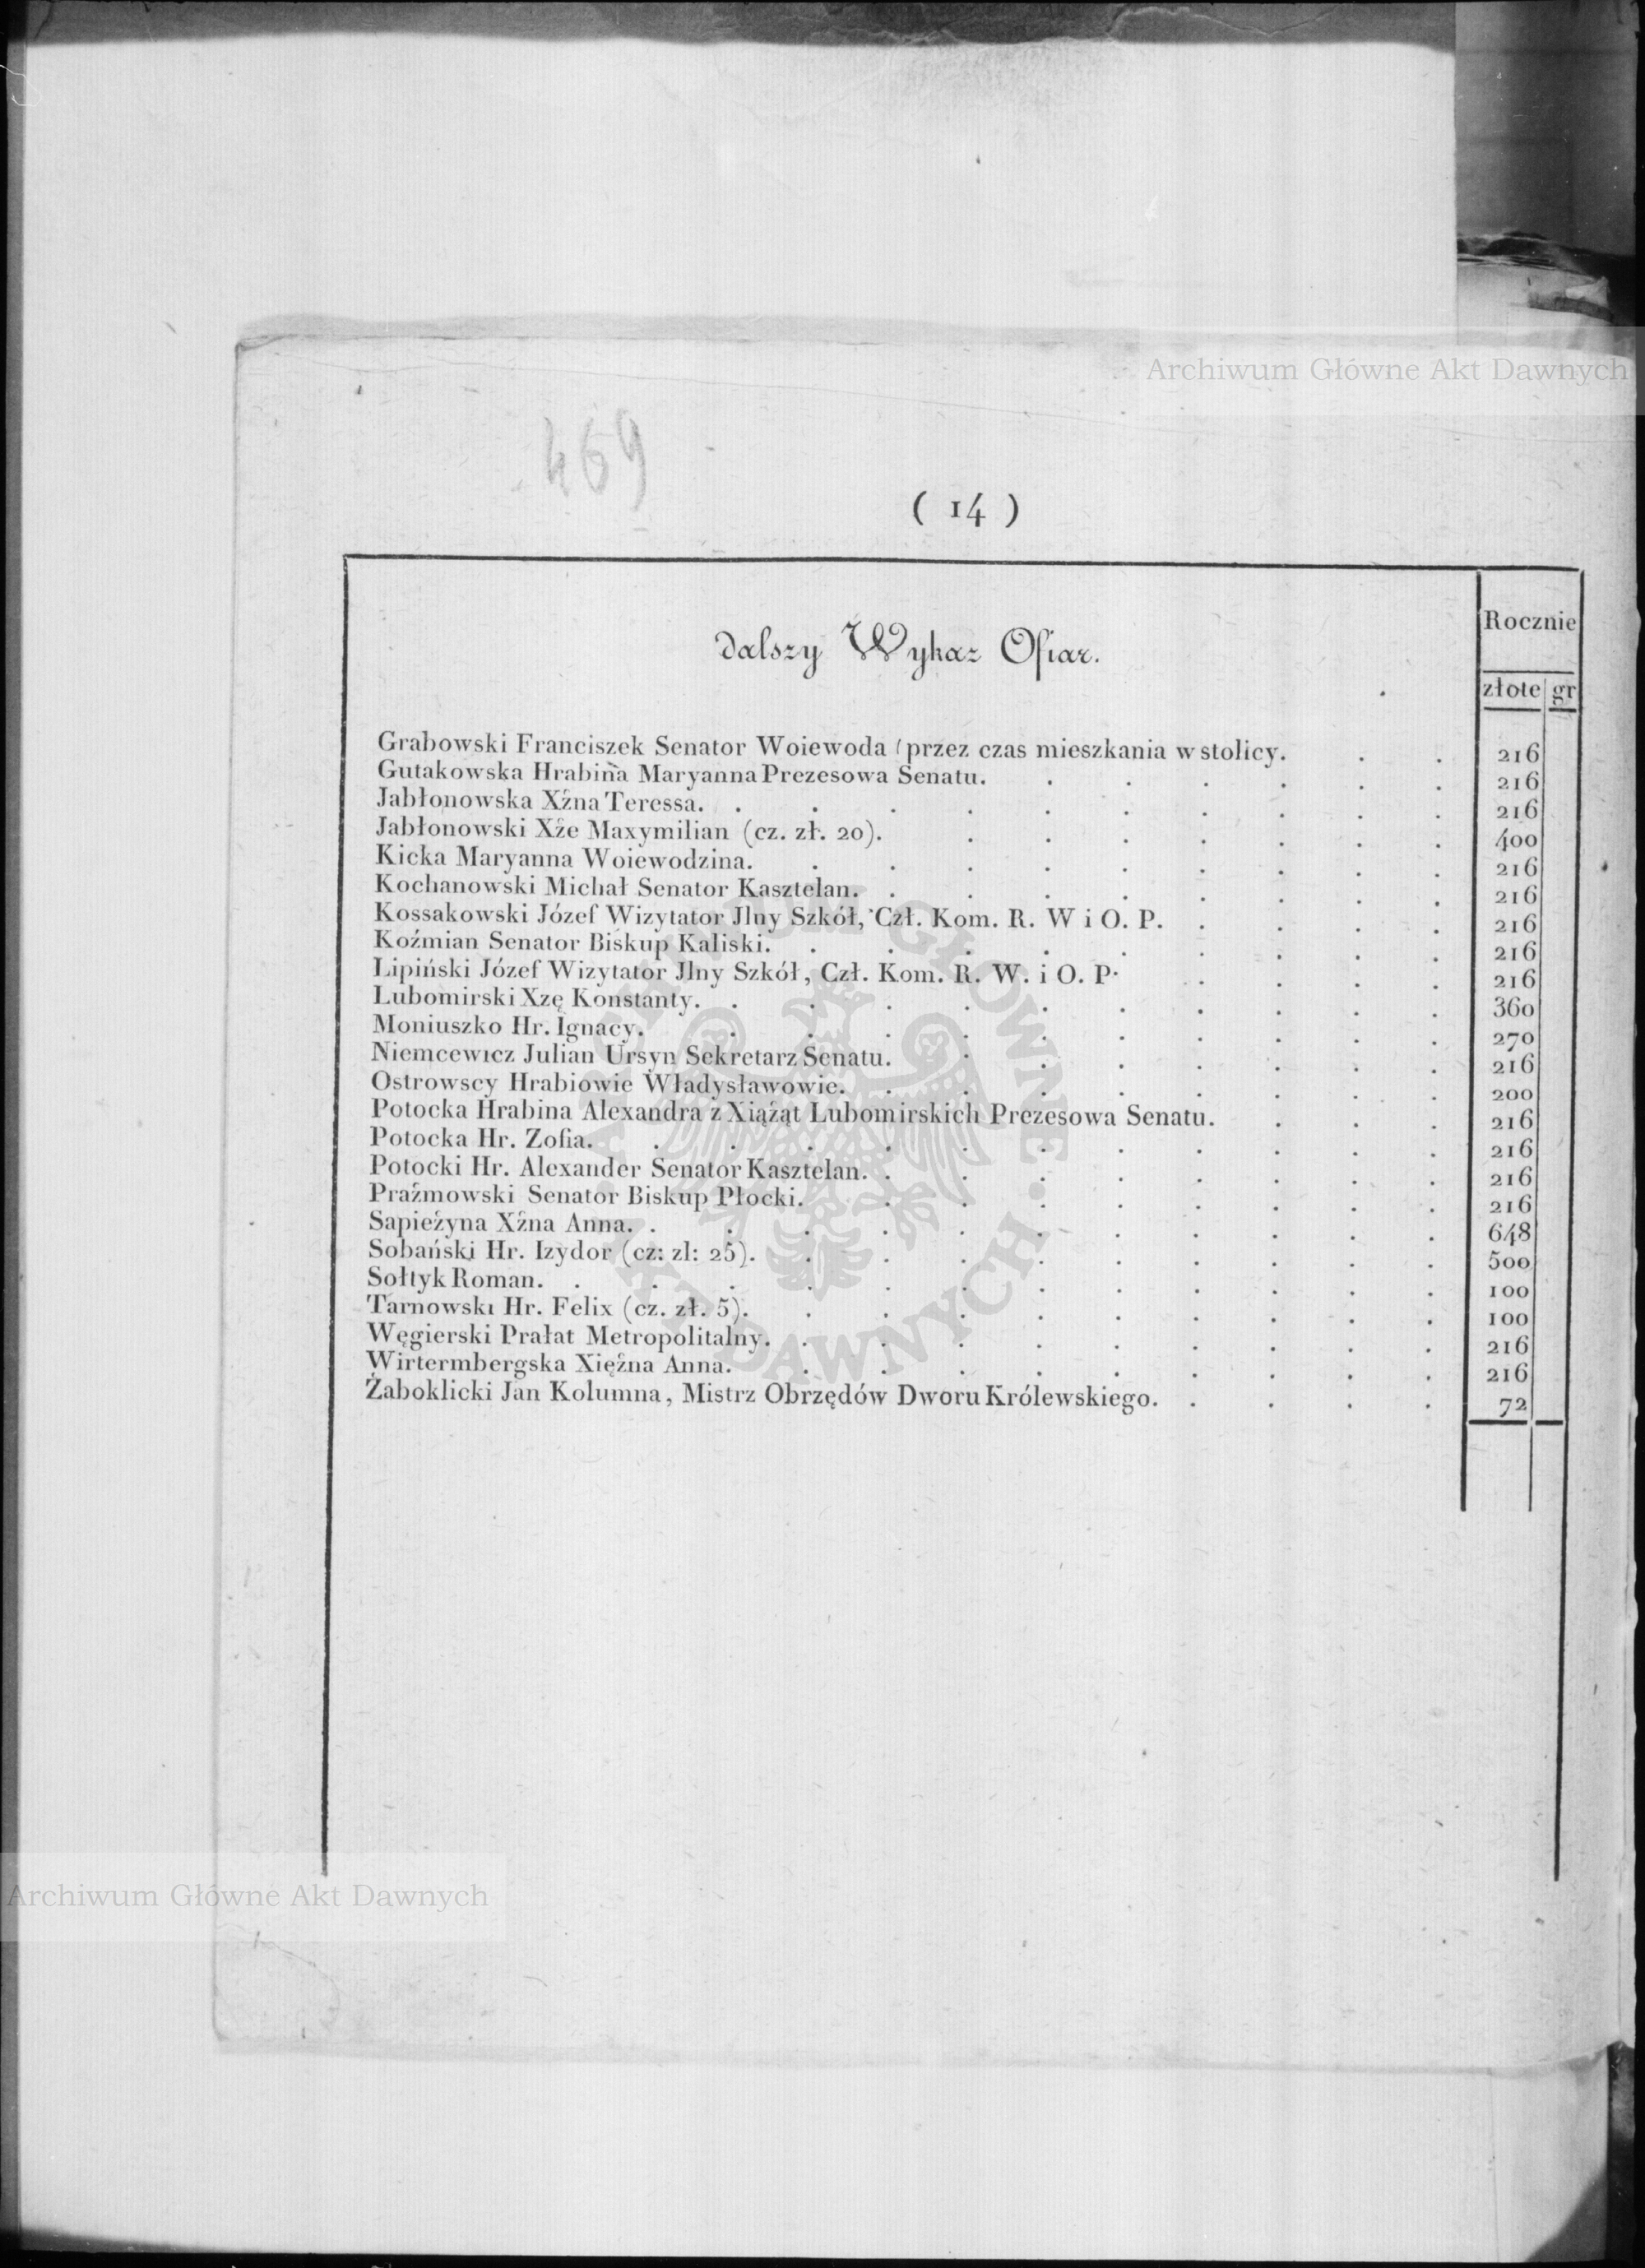 Archiwum Główne Akt Dawnych
469
( 14 )
dalszy Wykaz Ofiar.
Rocznie
złote gr
Grabowski Franciszek Senator Woiewoda (przez czas mieszkania w stolicy. . . 216
Gutakowska Hrabina Maryanna Prezesowa Senatu. . . . . . . 216
Jabłonowska Xżna Teressa. . . . . . . . . . . 216
Jabłonowski Xże Maxymilian (cz. zł. 20). . . . . . . . 400
Kicka Maryanna Woiewodzina. . . . . . . . . . 216
Kochanowski Michał Senator Kasztelan. . . . . . . . . 216
Kossakowski Józef Wizytator Jlny Szkół, Czł. Kom. R. W i O. P. . . . . 216
Koźmian Senator Biskup Kaliski. . . . . . . . . . 216
Lipiński Józef Wizytator Jlny Szkół, Czł. Kom. R. W. i O. P. . . . . 216
Lubomirski Xzę Konstanty. . . . . . . . . . . 360
Moniuszko Hr. Ignacy. . . . . . . . . . . 270
Niemcewicz Julian Ursyn Sekretarz Senatu. . . . . . . . 216
Ostrowscy Hrabiowie Władysławowie. . . . . . . . . 200
Potocka Hrabina Alexandra z Xiążąt Lubomirskich Prezesowa Senatu. . . . 216
Potocka Hr. Zofia. . . . . . . . . . . . 216
Potocki Hr. Alexander Senator Kasztelan. . . . . . . . . 216
Prażmowski Senator Biskup Płocki. . . . . . . . . . 216
Sapieżyna Xżna Anna. . . . . . . . . . . . 648
Sobański Hr. Izydor (cz: zl: 25). . . . . . . . . . 500
Sołtyk Roman. . . . . . . . . . . . . 100
Tarnowski Hr. Felix (cz. zł. 5). . . . . . . . . . 100
Węgierski Prałat Metropolitalny. . . . . . . . . . 216
Wirtermbergska Xiężna Anna. . . . . . . . . . 216
Żaboklicki Jan Kolumna, Mistrz Obrzędów Dworu Królewskiego. . . . . 72
ARCHIWUM GŁÓWNE AKT DAWNYCH
Archiwum Główne Akt Dawnych